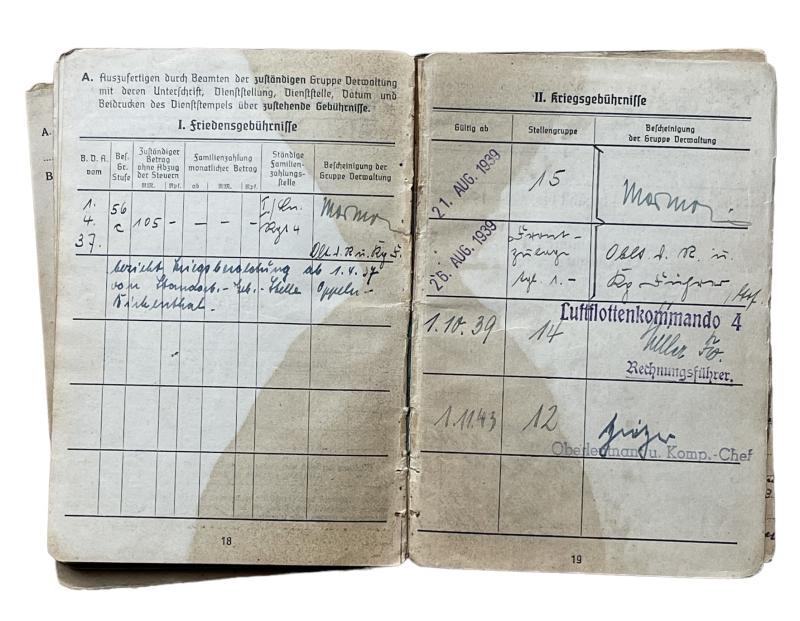 A. Auszufertigen durch Beamten der zuständigen Gruppe Verwaltung
mit deren Unterschrift, Dienststellung, Dienststelle, Datum und
Beidrucken des Dienststempels über zustehende Gebührnisse.
I. Friedensgebührnisse
B. D. A. vom
Bes. Gr. Stufe
Zuständiger Betrag ohne Abzug der Steuern
RM. Rpf.
Familienzahlung monatlicher Betrag
ab RM. Rpf.
Ständige Familienzahlungsstelle
Bescheinigung der Gruppe Verwaltung
1.
4.
37.
56
c
105 - - - -
bezieht Kriegsbesoldung ab 1.4.
vom Standort - Geb. - Stelle Oppeln -
18
II. Kriegsgebührnisse
Gültig ab
Stellengruppe
Bescheinigung der Gruppe Verwaltung
21. AUG. 1939
15
26. AUG. 1939
Front-
zulage
tgl. 1.-
Oblt. d. R. u.
Führer
1.10.39
14
Luftflottenkommando 4
Rechnungsführer.
1.11.43
12
Oberleutnant u. Komp.-Chef
19
A.
B